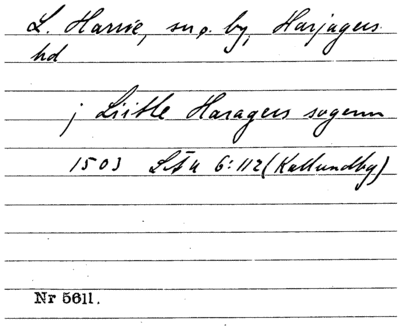 L. Harrie, sn o. by, Harjagers
hd
j Litle Haragers sogenn
1503 LÅU 6:112 (Kallundby)
Nr 5611.